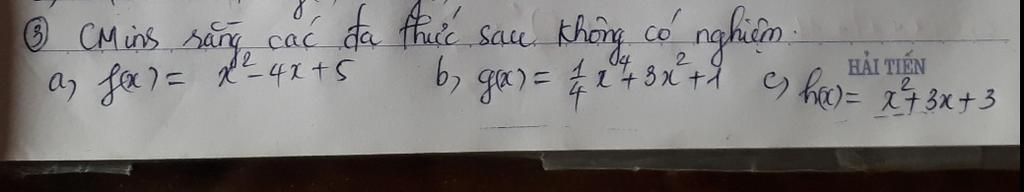 ③ CMinh rằng các đa thức sau không có nghiệm.
a, f(x) = x² - 4x + 5 b, g(x) = 1/4 x⁴ + 3x² + 1 c, h(x) = x² + 3x + 3
HẢI TIẾN